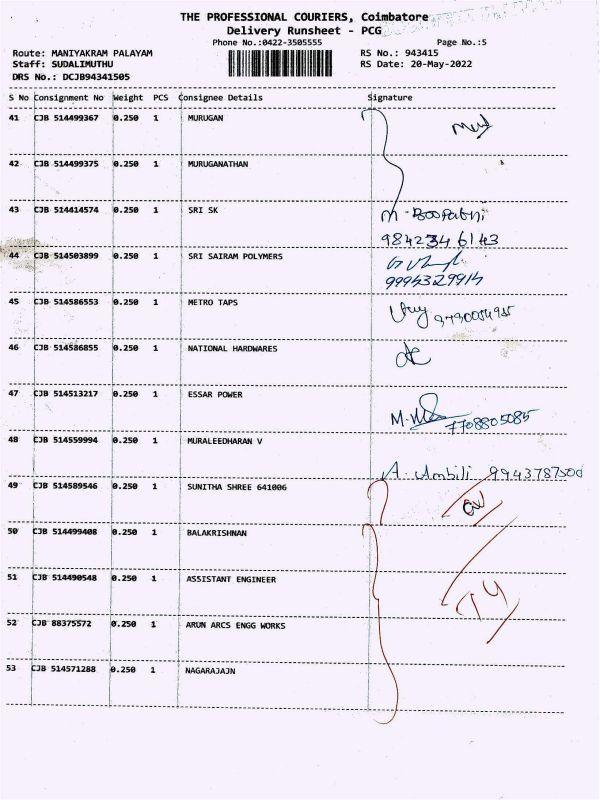 THE PROFESSIONAL COURIERS, Coimbatore
Delivery Runsheet - PCG
Phone No.:0422-3505555 Page No.:5
Route: MANIYAKRAM PALAYAM RS No.: 943415
Staff: SUDALIMUTHU RS Date: 20-May-2022
DRS No.: DCJB94341505
S No Consignment No Weight PCS Consignee Details Signature
41 CJB 514499367 0.250 1 MURUGAN
42 CJB 514499375 0.250 1 MURUGANATHAN
43 CJB 514414574 0.250 1 SRI SK M. Boopathi
9842346143
44 CJB 514503899 0.250 1 SRI SAIRAM POLYMERS
9994329914
45 CJB 514586553 0.250 1 METRO TAPS
46 CJB 514586855 0.250 1 NATIONAL HARDWARES
47 CJB 514513217 0.250 1 ESSAR POWER 7708805085
48 CJB 514559994 0.250 1 MURALEEDHARAN V A. Ambili 9943787500
49 CJB 514589546 0.250 1 SUNITHA SHREE 641006
50 CJB 514499408 0.250 1 BALAKRISHNAN
51 CJB 514490548 0.250 1 ASSISTANT ENGINEER
52 CJB 88375572 0.250 1 ARUN ARCS ENGG WORKS
53 CJB 514571288 0.250 1 NAGARAJAJN